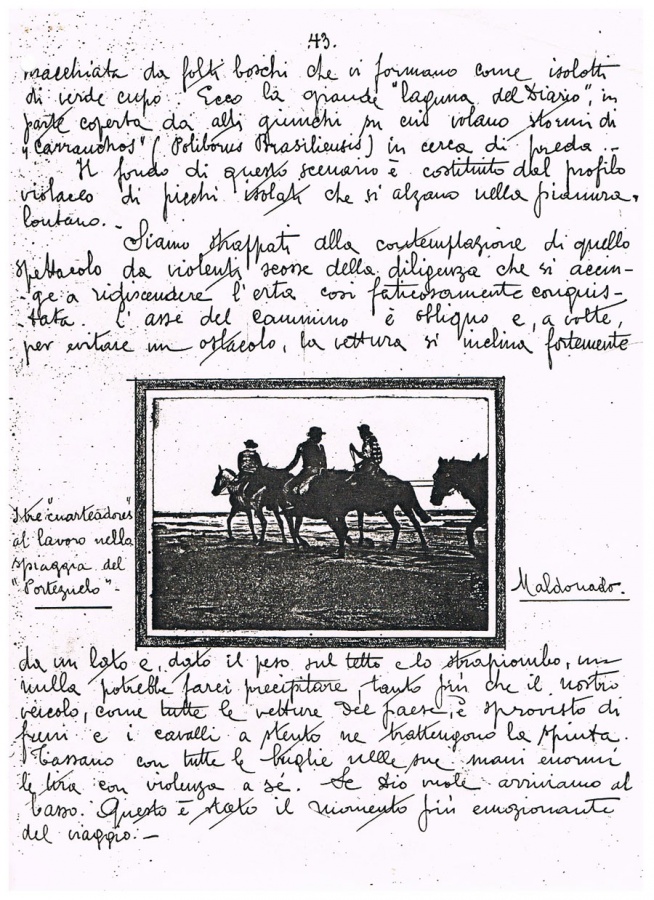 43.
macchiata da folti boschi che vi formano come isolotti
di verde cupo. Ecco la grande "laguna del Diario", in
parte coperta da alti giunchi su cui volano stormi di
"carranchos" (Poliborus Brasiliensis) in cerca di preda.-
Il fondo di questo scenario è costituito dal profilo
violaceo di picchi isolati che si alzano nella pianura,
lontano.-
Siamo strappati alla contemplazione di quello
spettacolo da violenti scosse della diligenza che si accin-
-ge a ridiscendere l'erta così faticosamente conquis-
-tata. L'asse del cammino è obliquo e, a volte,
per evitare un ostacolo, la vettura si inclina fortemente
I tre "cuarteadores"
al lavoro nella
spiaggia del
"Portezuelo"-
Maldonado.
da un lato e, dato il peso sul tetto e lo strapiombo, un
nulla potrebbe farci precipitare, tanto più che il nostro
veicolo, come tutte le vetture del paese, è sprovisto di
freni e i cavalli a stento ne trattengono la spinta.
Tassano con tutte le briglie nelle sue mani enormi
le tira con violenza a sé. Se Dio vuole arriviamo al
basso. Questo è stato il momento più emozionante
del viaggio.-